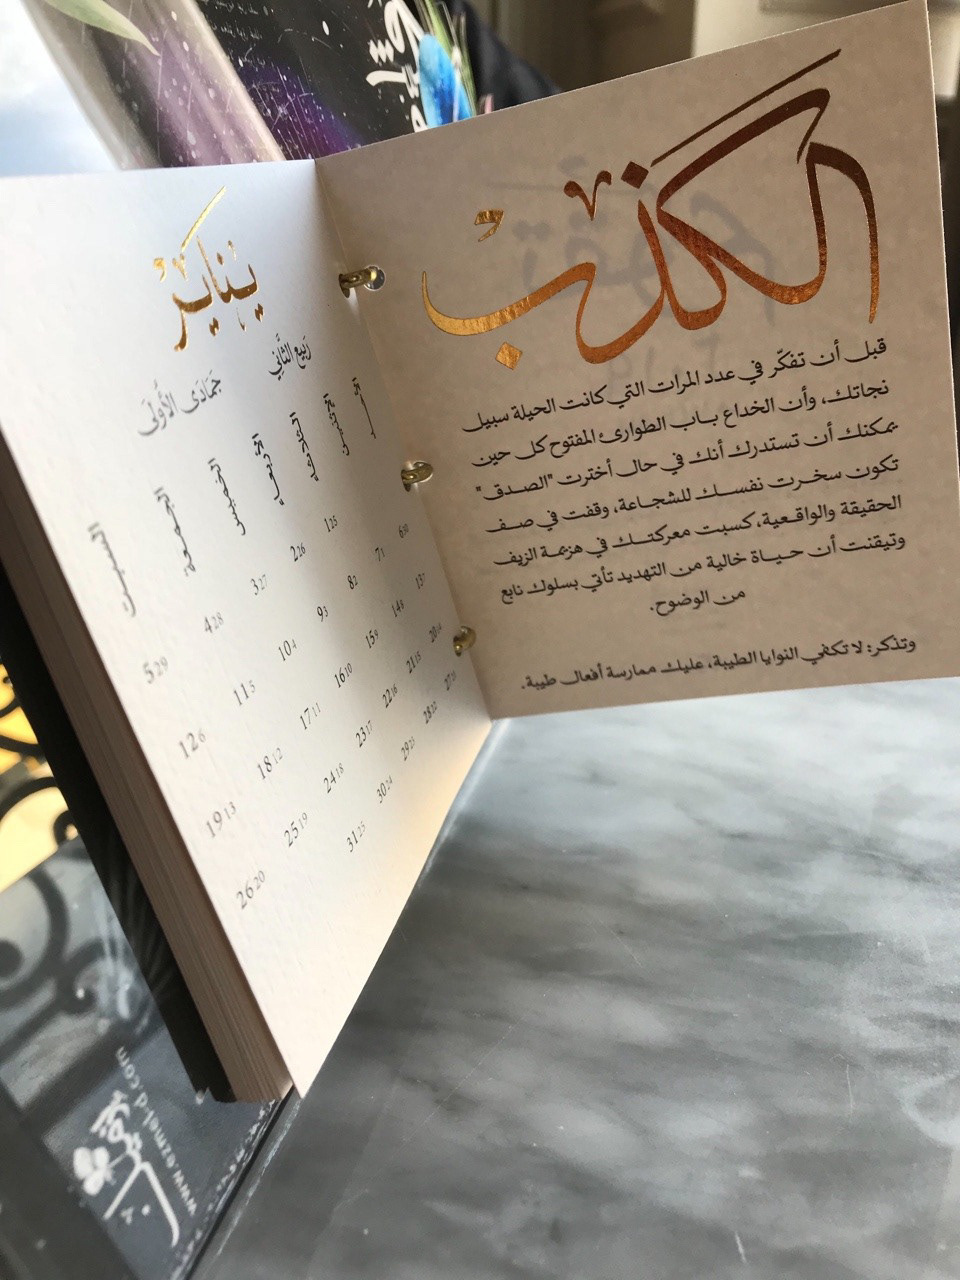 الكَذِبْ
قبل أن تفكّر في عدد المرات التي كانت الحيلة سبيل
نجاتك، وأن الخداع باب الطوارئ المفتوح كل حين
يمكنك أن تستدرك أنك في حال أخترت "الصدق"
تكون سخرت نفسك للشجاعة، وقفت في صف
الحقيقة والواقعية، كسبت معركتك في هزيمة الزيف
وتيقنت أن حياة خالية من التهديد تأتي بسلوك نابع
من الوضوح.
وتذكر: لا تكفي النوايا الطيبة، عليك ممارسة أفعال طيبة.
يناير
رَبيع الثَّاني
جَمَادَى الأُولَى
الأحد الأثنين الثلاثاء الأربعاء الخميس الجمعة السبت
1 25 2 26 3 27 4 28 5 29
6 30 7 1 8 2 9 3 10 4 11 5 12 6
13 7 14 8 15 9 16 10 17 11 18 12 19 13
20 14 21 15 22 16 23 17 24 18 25 19 26 20
27 21 28 22 29 23 30 24 31 25
www.ezmel-d.com